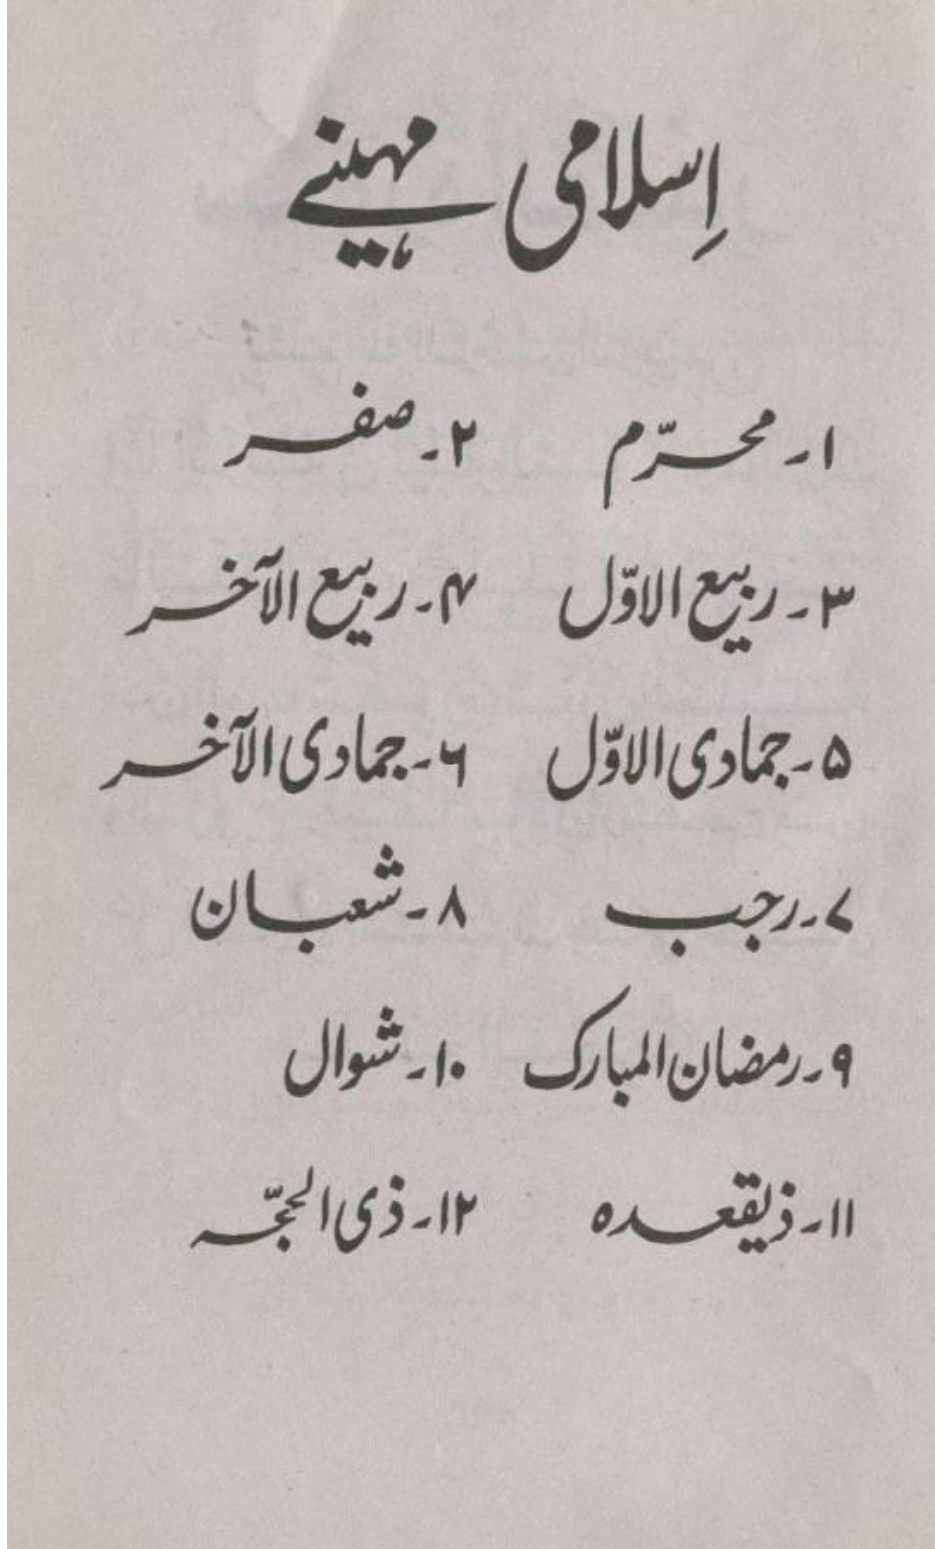 اِسلامی مہینے
۱۔ محرّم ۲۔ صفر
۳۔ ربیع الاوّل ۴۔ ربیع الآخر
۵۔ جمادی الاوّل ۶۔ جمادی الآخر
۷۔ رجب ۸۔ شعبان
۹۔ رمضان المبارک ۱۰۔ شوال
۱۱۔ ذیقعدہ ۱۲۔ ذی الحجّہ